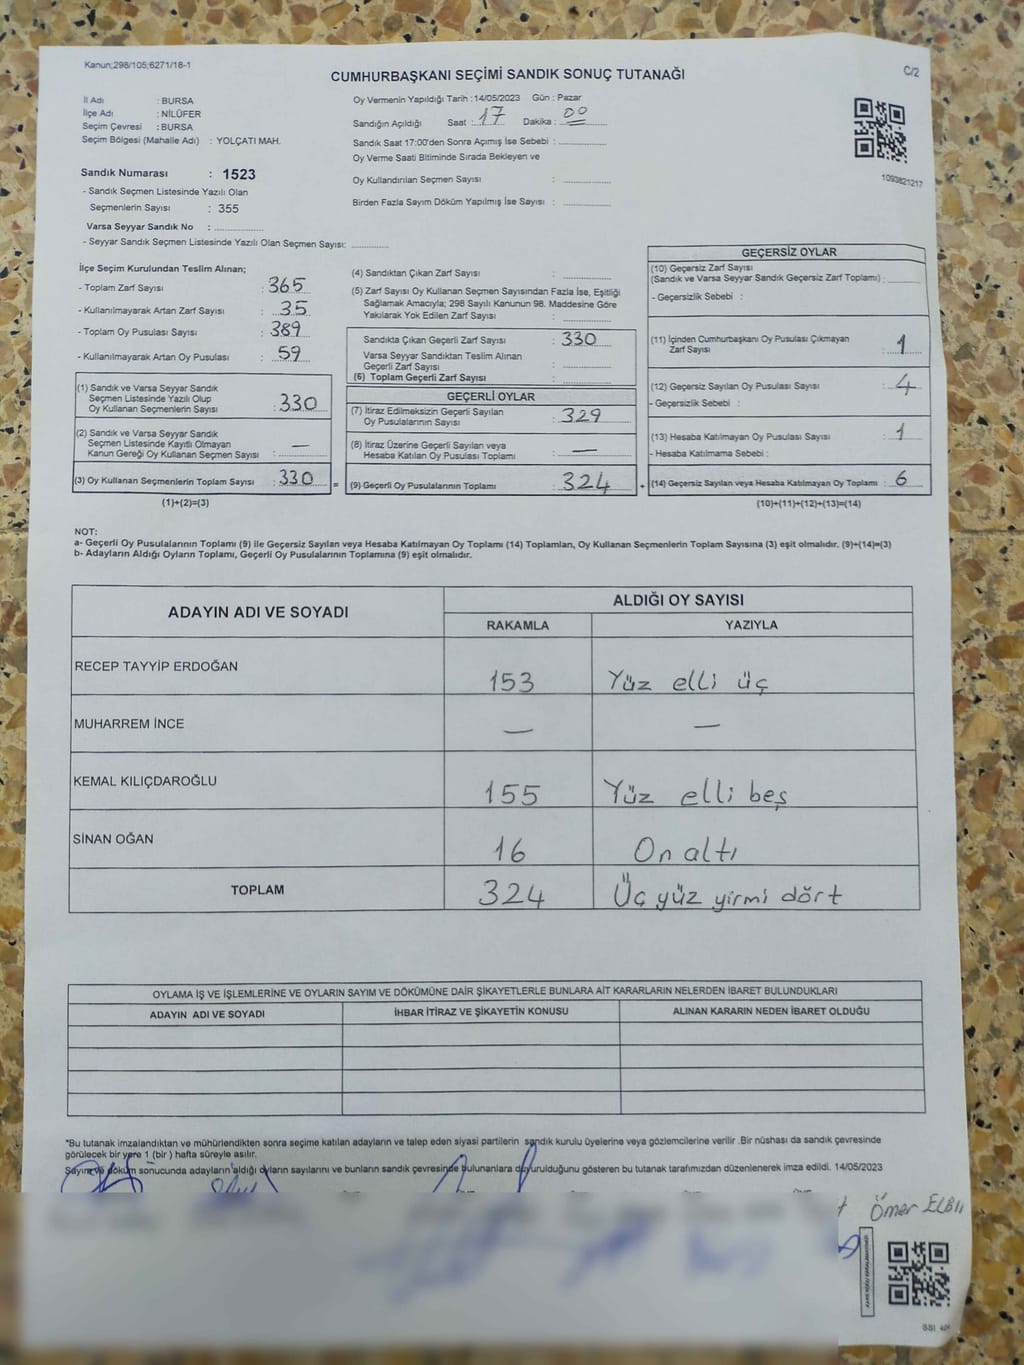 Kanun;298/105;6271/18-1
C/2
CUMHURBAŞKANI SEÇİMİ SANDIK SONUÇ TUTANAĞI
İl Adı : BURSA
İlçe Adı : NİLÜFER
Seçim Çevresi : BURSA
Seçim Bölgesi (Mahalle Adı) : YOLÇATI MAH.
Sandık Numarası : 1523
- Sandık Seçmen Listesinde Yazılı Olan
Seçmenlerin Sayısı : 355
Varsa Seyyar Sandık No :
- Seyyar Sandık Seçmen Listesinde Yazılı Olan Seçmen Sayısı:
Oy Vermenin Yapıldığı Tarih :14/05/2023 Gün : Pazar
Sandığın Açıldığı Saat : 17 Dakika : 00
Sandık Saat 17:00'den Sonra Açımış İse Sebebi :
Oy Verme Saati Bitiminde Sırada Bekleyen ve
Oy Kullandırılan Seçmen Sayısı :
Birden Fazla Sayım Döküm Yapılmış İse Sayısı :
1090821217
İlçe Seçim Kurulundan Teslim Alınan;
- Toplam Zarf Sayısı : 365
- Kullanılmayarak Artan Zarf Sayısı : 35
- Toplam Oy Pusulası Sayısı : 389
- Kullanılmayarak Artan Oy Pusulası : 59
(1) Sandık ve Varsa Seyyar Sandık
Seçmen Listesinde Yazılı Olup
Oy Kullanan Seçmenlerin Sayısı : 330
(2) Sandık ve Varsa Seyyar Sandık
Seçmen Listesinde Kayıtlı Olmayan
Kanun Gereği Oy Kullanan Seçmen Sayısı : —
(3) Oy Kullanan Seçmenlerin Toplam Sayısı : 330 =
(1)+(2)=(3)
(4) Sandıktan Çıkan Zarf Sayısı :
(5) Zarf Sayısı Oy Kullanan Seçmen Sayısından Fazla İse, Eşitliği
Sağlamak Amacıyla; 298 Sayılı Kanunun 98. Maddesine Göre
Yakılarak Yok Edilen Zarf Sayısı :
Sandıkta Çıkan Geçerli Zarf Sayısı : 330
Varsa Seyyar Sandıktan Teslim Alınan
Geçerli Zarf Sayısı :
(6) Toplam Geçerli Zarf Sayısı :
GEÇERLİ OYLAR
(7) İtiraz Edilmeksizin Geçerli Sayılan
Oy Pusulalarının Sayısı : 329
(8) İtiraz Üzerine Geçerli Sayılan veya
Hesaba Katılan Oy Pusulası Toplamı : —
(9) Geçerli Oy Pusulalarının Toplamı : 324 +
GEÇERSİZ OYLAR
(10) Geçersiz Zarf Sayısı
(Sandık ve Varsa Seyyar Sandık Geçersiz Zarf Toplamı) :
- Geçersizlik Sebebi :
(11) İçinden Cumhurbaşkanı Oy Pusulası Çıkmayan
Zarf Sayısı : 1
(12) Geçersiz Sayılan Oy Pusulası Sayısı : 4
- Geçersizlik Sebebi :
(13) Hesaba Katılmayan Oy Pusulası Sayısı : 1
- Hesaba Katılmama Sebebi :
(14) Geçersiz Sayılan veya Hesaba Katılmayan Oy Toplamı : 6
(10)+(11)+(12)+(13)=(14)
NOT:
a- Geçerli Oy Pusulalarının Toplamı (9) ile Geçersiz Sayılan veya Hesaba Katılmayan Oy Toplamı (14) Toplamları, Oy Kullanan Seçmenlerin Toplam Sayısına (3) eşit olmalıdır. (9)+(14)=(3)
b- Adayların Aldığı Oyların Toplamı, Geçerli Oy Pusulalarının Toplamına (9) eşit olmalıdır.
ADAYIN ADI VE SOYADI
ALDIĞI OY SAYISI
RAKAMLA YAZIYLA
RECEP TAYYİP ERDOĞAN 153 Yüz elli üç
MUHARREM İNCE — —
KEMAL KILIÇDAROĞLU 155 Yüz elli beş
SİNAN OĞAN 16 On altı
TOPLAM 324 Üç yüz yirmi dört
OYLAMA İŞ VE İŞLEMLERİNE VE OYLARIN SAYIM VE DÖKÜMÜNE DAİR ŞİKAYETLERLE BUNLARA AİT KARARLARIN NELERDEN İBARET BULUNDUKLARI
ADAYIN ADI VE SOYADI İHBAR İTİRAZ VE ŞİKAYETİN KONUSU ALINAN KARARIN NEDEN İBARET OLDUĞU
*Bu tutanak imzalandıktan ve mühürlendikten sonra seçime katılan adayların ve talep eden siyasi partilerin sandık kurulu üyelerine veya gözlemcilerine verilir .Bir nüshası da sandık çevresinde
görülecek bir yere 1 (bir ) hafta süreyle asılır.
Sayım ve döküm sonucunda adayların aldığı oyların sayılarını ve bunların sandık çevresinde bulunanlara duyurulduğunu gösteren bu tutanak tarafımızdan düzenlenerek imza edildi. 14/05/2023
Ömer